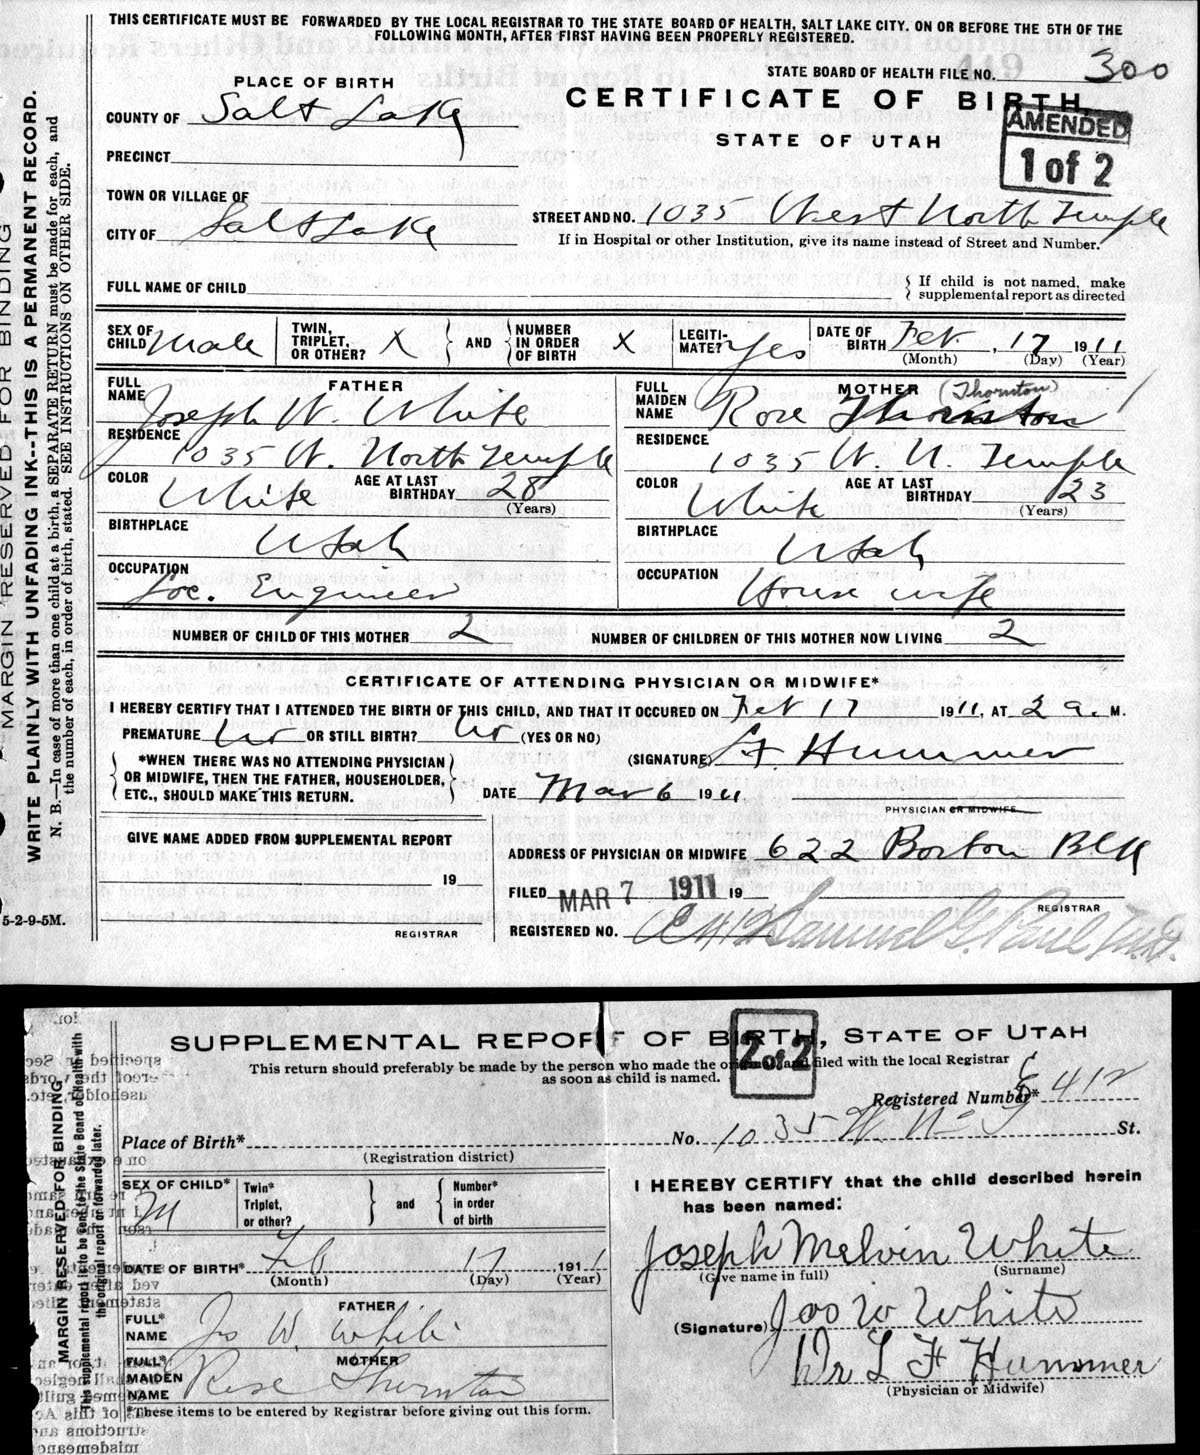 THIS CERTIFICATE MUST BE FORWARDED BY THE LOCAL REGISTRAR TO THE STATE BOARD OF HEALTH, SALT LAKE CITY. ON OR BEFORE THE 5TH OF THE
FOLLOWING MONTH, AFTER FIRST HAVING BEEN PROPERLY REGISTERED.
MARGIN RESERVED FOR BINDING
WRITE PLAINLY WITH UNFADING INK--THIS IS A PERMANENT RECORD.
N. B.—In case of more than one child at a birth, a SEPARATE RETURN must be made for each, and
the number of each, in order of birth, stated. SEE INSTRUCTIONS ON OTHER SIDE.
STATE BOARD OF HEALTH FILE NO. 300
PLACE OF BIRTH
CERTIFICATE OF BIRTH
STATE OF UTAH
AMENDED
1 of 2
COUNTY OF Salt Lake
PRECINCT
TOWN OR VILLAGE OF
CITY OF Salt Lake
STREET AND NO. 1035 West North Temple
If in Hospital or other Institution, give its name instead of Street and Number.
FULL NAME OF CHILD
If child is not named, make
supplemental report as directed
SEX OF CHILD Male
TWIN, TRIPLET, OR OTHER? X
AND
NUMBER IN ORDER OF BIRTH X
LEGITI-MATE? Yes
DATE OF BIRTH Feb. 17 1911
(Month) (Day) (Year)
FATHER
FULL NAME Joseph W. White
RESIDENCE 1035 W. North Temple
COLOR White AGE AT LAST BIRTHDAY 28
(Years)
BIRTHPLACE Utah
OCCUPATION Loc. Engineer
MOTHER (Thornton)
FULL MAIDEN NAME Rose Thornton
RESIDENCE 1035 W. N. Temple
COLOR White AGE AT LAST BIRTHDAY 23
(Years)
BIRTHPLACE Utah
OCCUPATION House wife
NUMBER OF CHILD OF THIS MOTHER 2 NUMBER OF CHILDREN OF THIS MOTHER NOW LIVING 2
CERTIFICATE OF ATTENDING PHYSICIAN OR MIDWIFE*
I HEREBY CERTIFY THAT I ATTENDED THE BIRTH OF THIS CHILD, AND THAT IT OCCURED ON Feb 17 1911, AT 2 a. M.
PREMATURE No OR STILL BIRTH? No (YES OR NO)
(SIGNATURE) L F. Hummer
*WHEN THERE WAS NO ATTENDING PHYSICIAN
OR MIDWIFE, THEN THE FATHER, HOUSEHOLDER,
ETC., SHOULD MAKE THIS RETURN.
DATE Mar 6 1911
PHYSICIAN OR MIDWIFE
GIVE NAME ADDED FROM SUPPLEMENTAL REPORT
19
REGISTRAR
5-2-9-5M.
ADDRESS OF PHYSICIAN OR MIDWIFE 622 Boston Bldg
FILED MAR 7 1911 19
REGISTRAR
REGISTERED NO. E 412 Samuel G. Paul, M.D.
SUPPLEMENTAL REPORT OF BIRTH, STATE OF UTAH
2 of 2
This return should preferably be made by the person who made the original and filed with the local Registrar
as soon as child is named.
MARGIN RESERVED FOR BINDING
The supplemental report is to be sent to the State Board of Health with
the original report or forwarded later.
Registered Number* E 412
Place of Birth* No. 1035 W. No T St.
(Registration district)
SEX OF CHILD* M
Twin* Triplet, or other?
and
Number* in order of birth
DATE OF BIRTH* Feb 17 1911
(Month) (Day) (Year)
FATHER
FULL* NAME Jos W. White
MOTHER
FULL* MAIDEN NAME Rose Thornton
*These items to be entered by Registrar before giving out this form.
I HEREBY CERTIFY that the child described herein
has been named:
Joseph Melvin White
(Give name in full) (Surname)
(Signature) Jos W White
Dr L F Hummer
(Physician or Midwife)